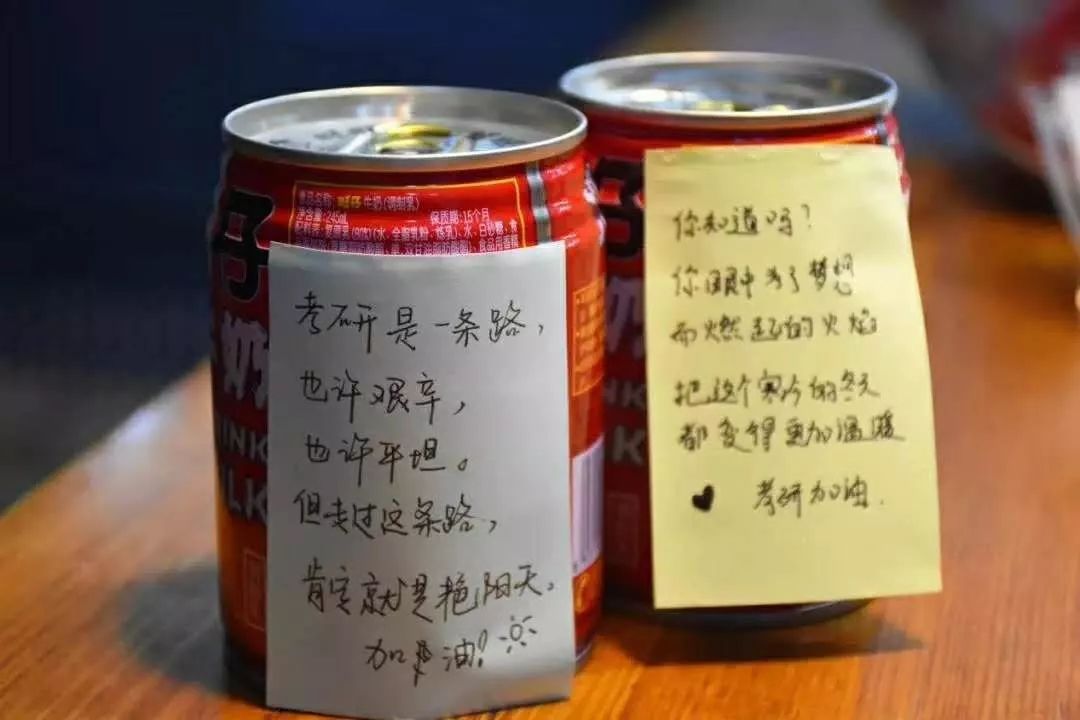 食品名称: 旺仔牛奶(调制乳)
净含量: 245mL 保质期: 15个月
仔
奶
INK
LK
考研是一条路，
也许艰辛，
也许平坦。
但走过这条路，
肯定就是艳阳天。
加油！
奶
NK
K
你知道吗？
你眼中为了梦想
而燃起的火焰
把这个寒冷的冬天
都变得更加温暖
考研加油.